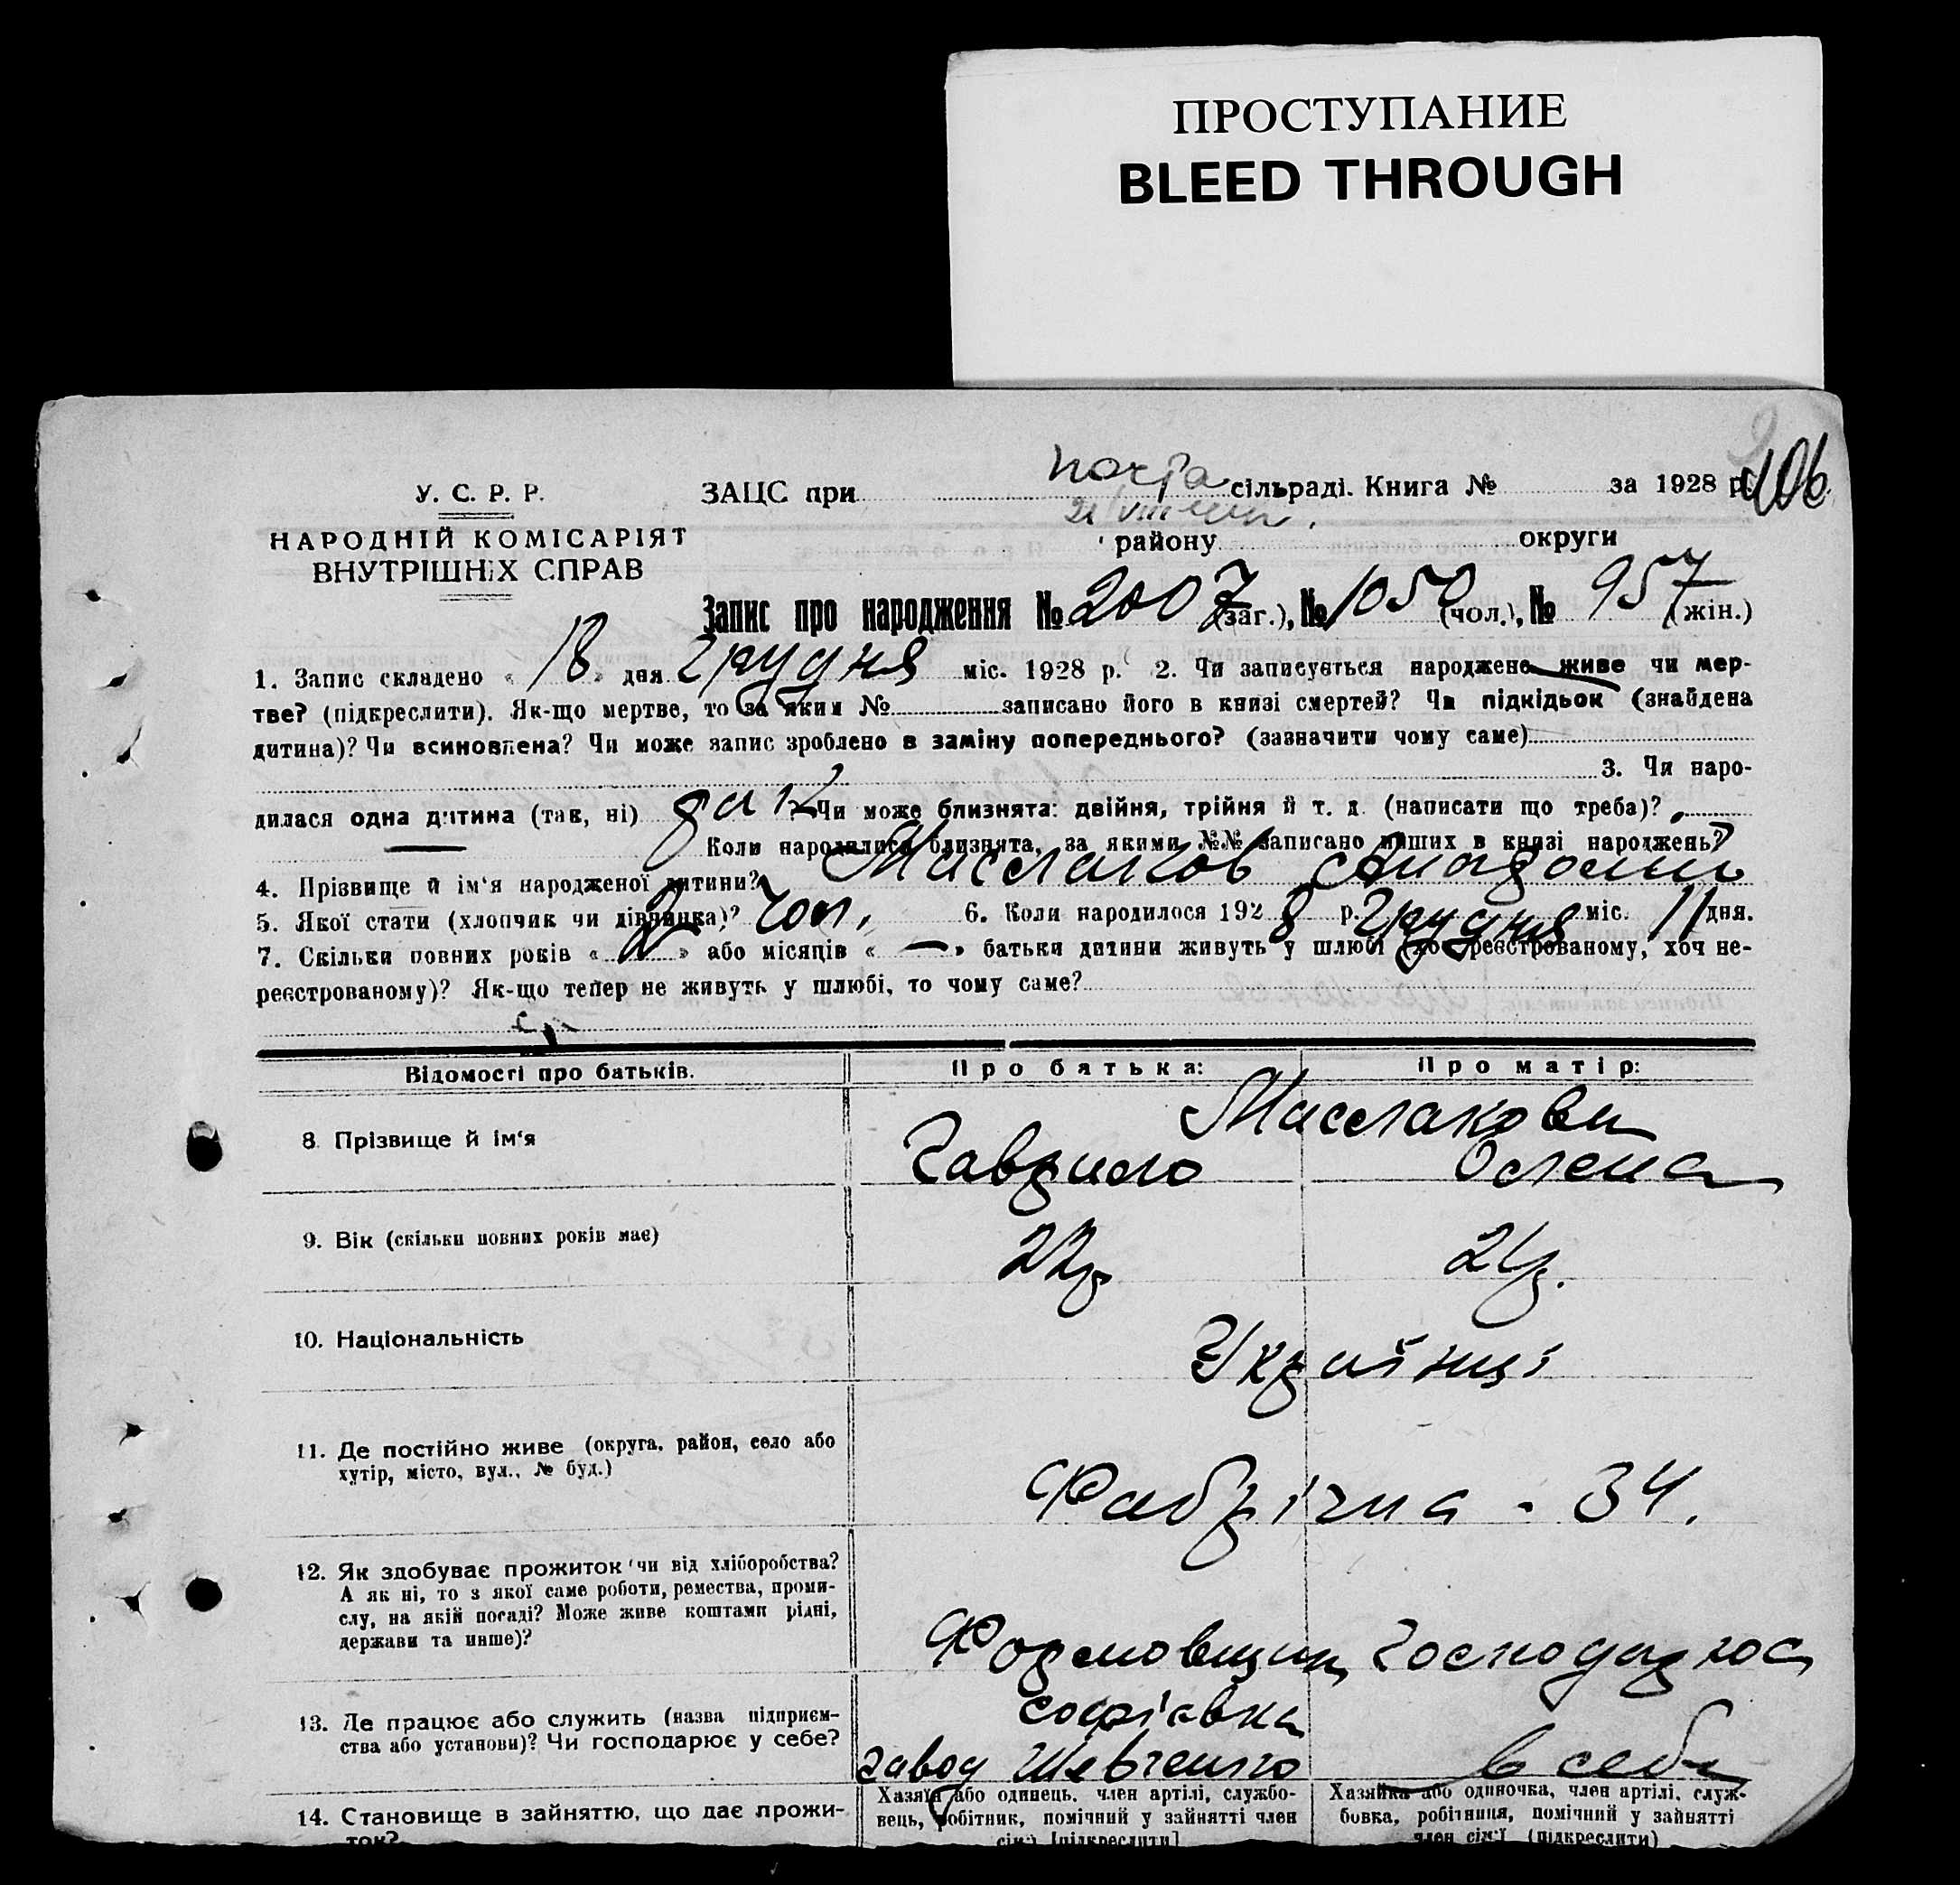 ПРОСТУПАНИЕ
BLEED THROUGH
106
У. С. Р. Р.
НАРОДНІЙ КОМІСАРІЯТ
ВНУТРІШНІХ СПРАВ
ЗАЦС при почта сільраді. Книга № за 1928 р.
району округи
Запис про народження № 2007 (заг.), № 1050 (чол.), № 957 (жін.)
1. Запис складено « 18 » дня грудня міс. 1928 р. 2. Чи записується народжене живе чи мер-
тве? (підкреслити). Як-що мертве, то за яким № записано його в книзі смертей? Чи підкідьок (знайдена
дитина)? Чи всиновлена? Чи може запис зроблено в заміну попереднього? (зазначити чому саме)
3. Чи наро-
дилася одна дитина (так, ні) ? Чи може близнята: двійня, трійня й т. д. (написати що треба)?
Коли народилися близнята, за якими №№ записано инших в книзі народжень?
4. Прізвище й ім'я народженої дитини? Масслаков
5. Якої стати (хлопчик чи дівчинка)? чол. 6. Коли народилося 1928 р. грудня міс. 11 дня.
7. Скільки повних років « 2 » або місяців « — » батьки дитини живуть у шлюбі (хоч реєстрованому, хоч не-
реєстрованому)? Як-що тепер не живуть у шлюбі, то чому саме?
Відомості про батьків. Про батька: Про матір:
Масслакови
8. Прізвище й ім'я Гаврило Олена
9. Вік (скільки повних років має) 22 р. 21 р.
10. Національність Українці
11. Де постійно живе (округа, район, село або
хутір, місто, вул., № буд.) Фабрічна - 34.
12. Як здобуває прожиток чи від хліборобства?
А як ні, то з якої саме роботи, ремества, проми-
слу, на якій посаді? Може живе коштами рідні,
держави та инше)?
Формовщик Господарює
13. Де працює або служить (назва підприєм-
ства або установи)? Чи господарює у себе?
Софіевка
завод Шевченко в себе
14. Становище в зайняттю, що дає прожи-
ток?
Хазяїн або одинець, член артілі, службо-
вець, робітник, помічний у зайнятті член
сім'ї [підкреслити]
Хазяйка або одиночка, член артілі, служ-
бовка, робітниця, помічний у зайнятті
член сім'ї (підкреслити)